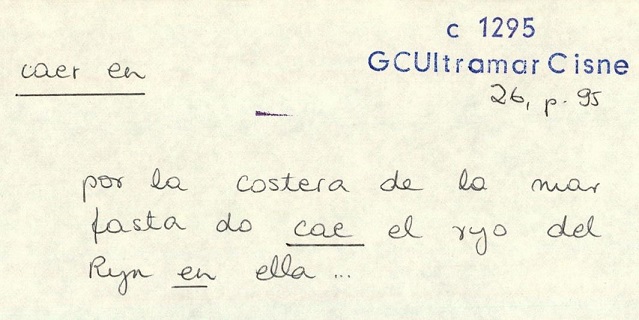 c 1295
GCUltramarCisne
caer en
26, p. 95
por la costera de la mar
fasta do cae el ryo del
Ryn en ella...